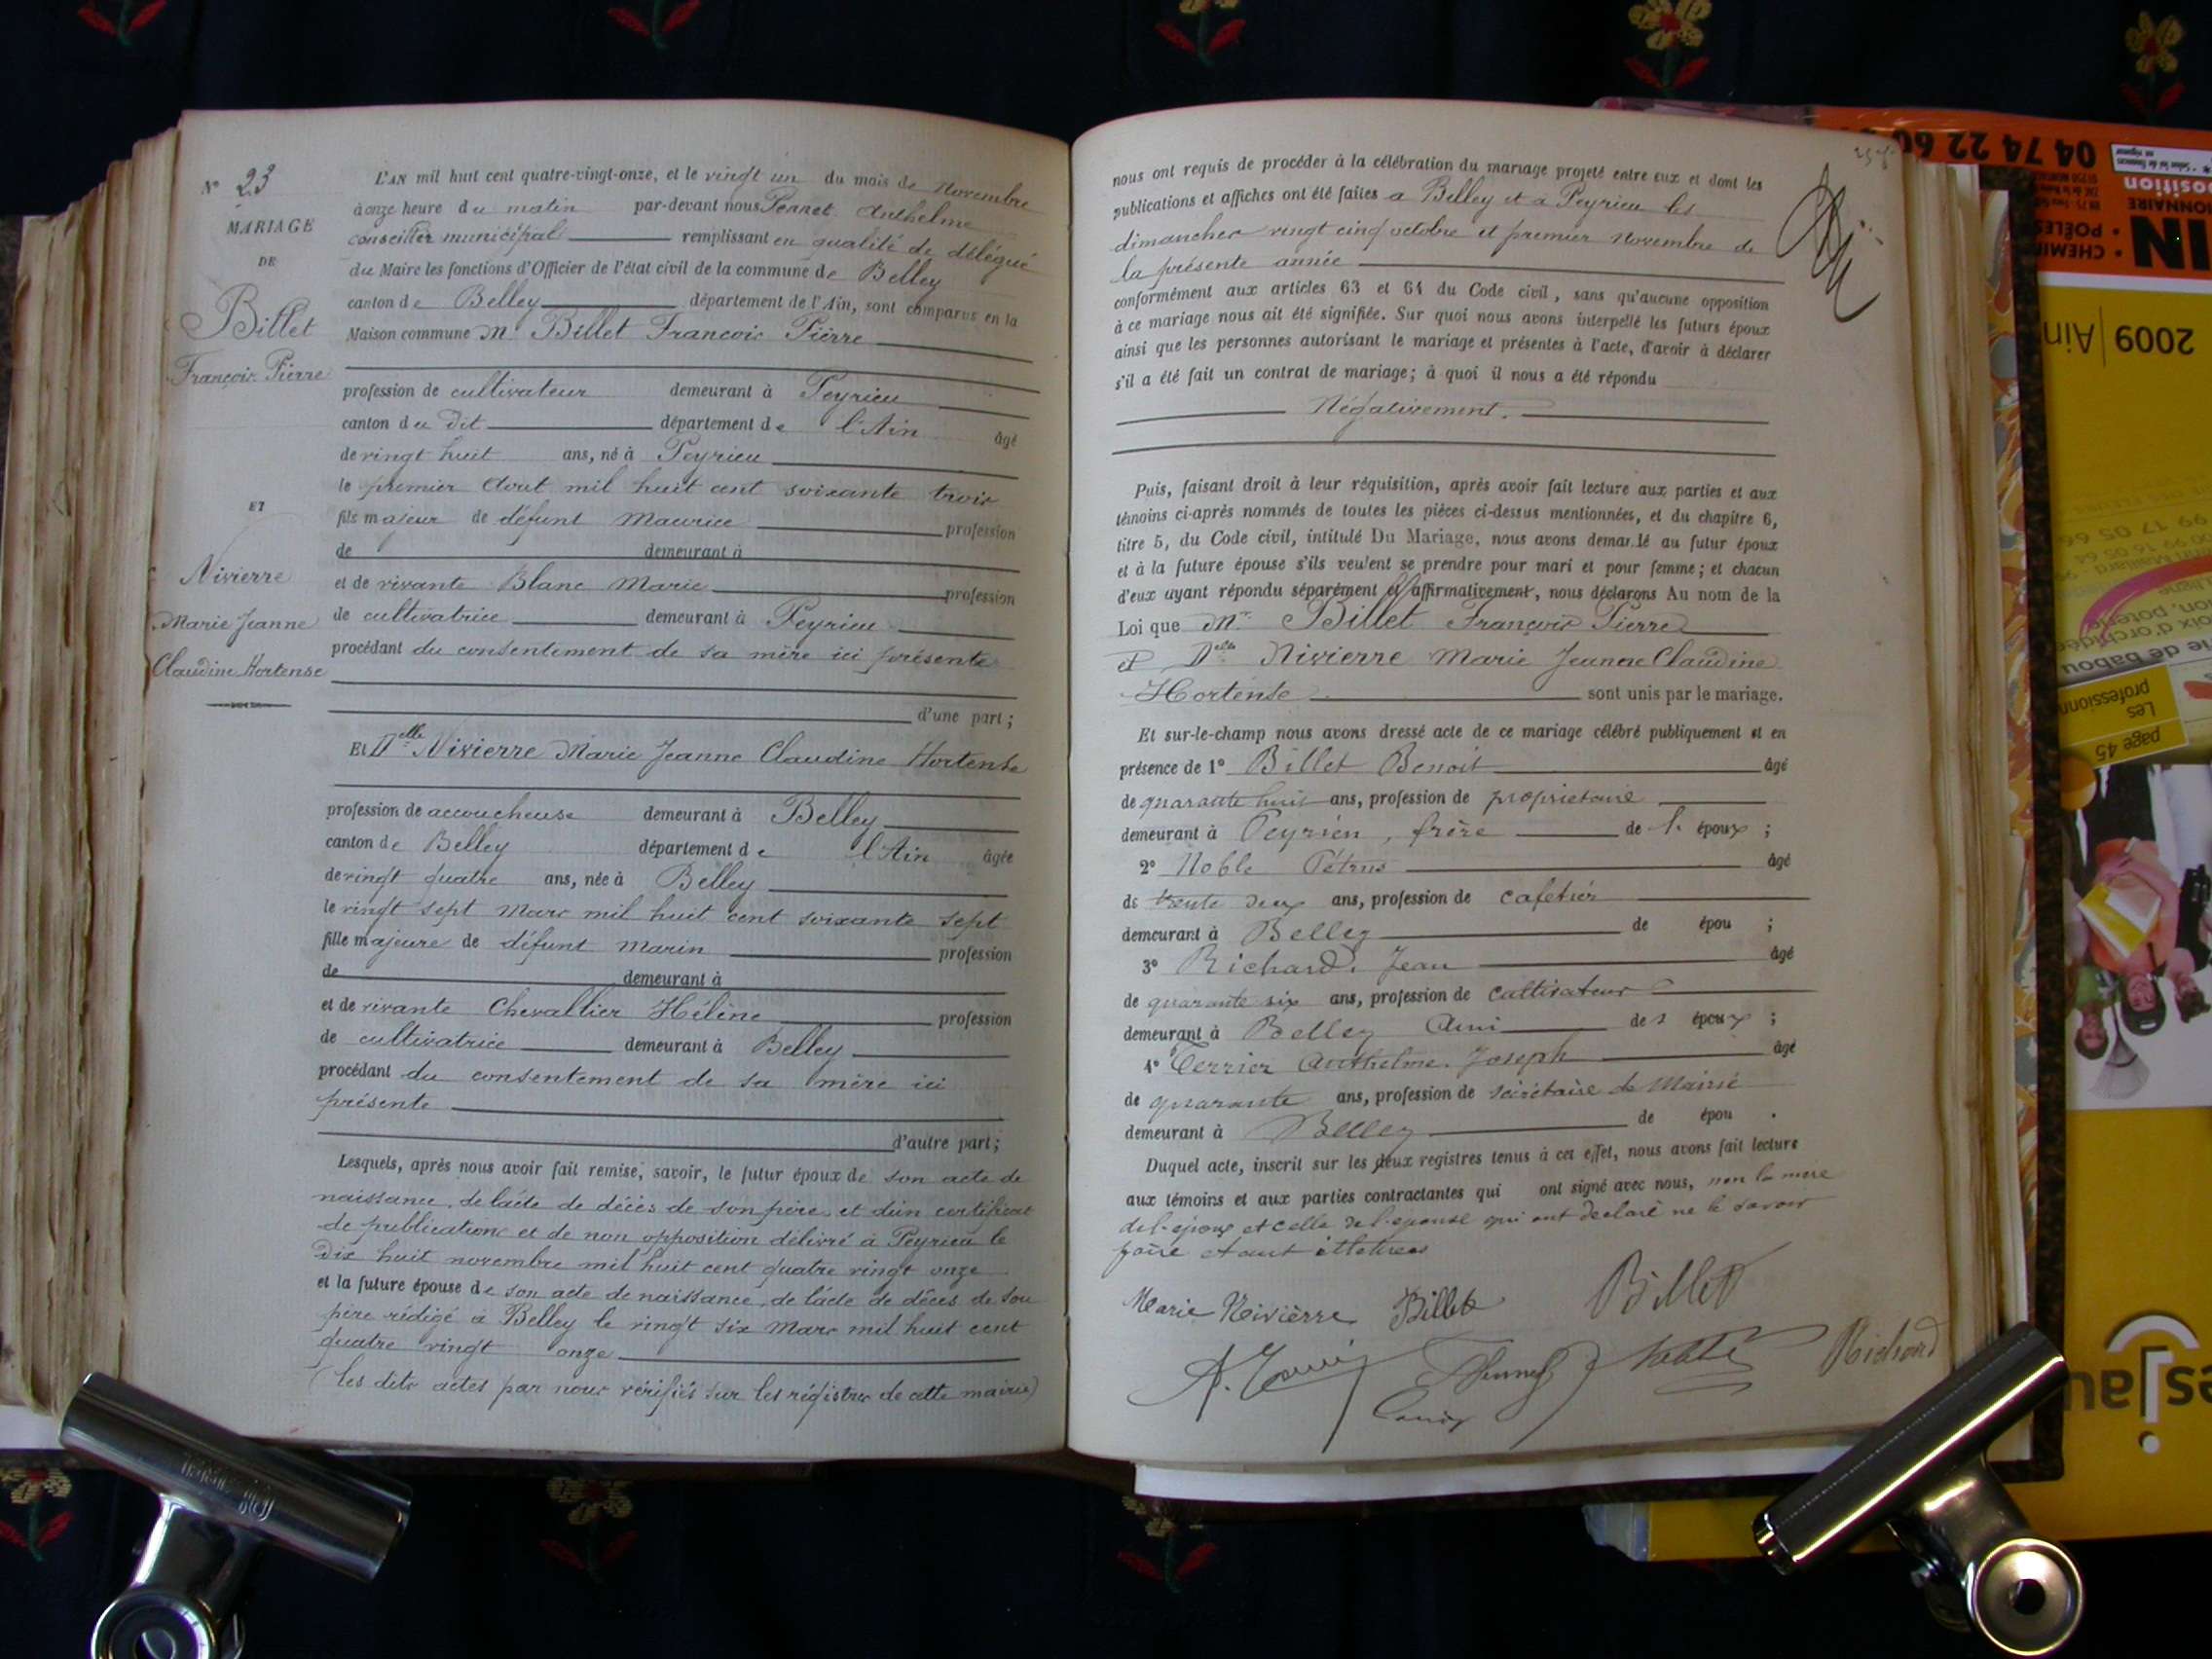 N° 23
MARIAGE
DE
Billet
François Pierre
ET
Nivierre
Marie Jeanne
Claudine Hortense
L'AN mil huit cent quatre-vingt-onze, et le vingt un du mois de Novembre
à onze heure du matin par-devant nous Pennet Anthelme
conseiller municipal remplissant en qualité de délégué
du Maire les fonctions d'Officier de l'état civil de la commune de Belley
canton de Belley département de l'Ain, sont comparus en la
Maison commune Mr Billet François Pierre
profession de cultivateur demeurant à Peyrieu
canton du dit département de l'Ain âgé
de vingt huit ans, né à Peyrieu
le premier Aout mil huit cent soixante trois
fils majeur de défunt Maurice profession
de demeurant à
et de vivante Blanc Marie profession
de cultivatrice demeurant à Peyrieu
procédant du consentement de sa mère ici présente
d'une part ;
Et Delle Nivierre Marie Jeanne Claudine Hortense
profession de accoucheuse demeurant à Belley
canton de Belley département de l'Ain âgée
de vingt quatre ans, née à Belley
le vingt sept Mars mil huit cent soixante sept
fille majeure de défunt Marin profession
de demeurant à
et de vivante Chevallier Hélène profession
de cultivatrice demeurant à Belley
procédant du consentement de sa mère ici
présente
d'autre part ;
Lesquels, après nous avoir fait remise, savoir, le futur époux de son acte de
naissance, de l'acte de décès de son père, et d'un certificat
de publications et de non opposition délivré à Peyrieu le
dix huit novembre mil huit cent quatre vingt onze
et la future épouse de son acte de naissance, de l'acte de décès de son
père rédigé à Belley le vingt six Mars mil huit cent
quatre vingt onze
(les dits actes par nous vérifiés sur les régistres de cette mairie)
nous ont requis de procéder à la célébration du mariage projeté entre eux et dont les
publications et affiches ont été faites a Belley et a Peyrieu les
dimanches vingt cinq octobre et premier Novembre de
la présente année
conformément aux articles 63 et 64 du Code civil, sans qu'aucune opposition
à ce mariage nous ait été signifiée. Sur quoi nous avons interpellé les futurs époux
ainsi que les personnes autorisant le mariage et présentes à l'acte, d'avoir à déclarer
s'il a été fait un contrat de mariage ; à quoi il nous a été répondu
Négativement.
Puis, faisant droit à leur réquisition, après avoir fait lecture aux parties et aux
témoins ci-après nommés de toutes les pièces ci-dessus mentionnées, et du chapitre 6,
titre 5, du Code civil, intitulé Du Mariage, nous avons demandé au futur époux
et à la future épouse s'ils veulent se prendre pour mari et pour femme ; et chacun
d'eux ayant répondu séparément et affirmativement, nous déclarons Au nom de la
Loi que Mr Billet François Pierre
et Delle Nivierre Marie Jeanne Claudine
Hortense sont unis par le mariage.
Et sur-le-champ nous avons dressé acte de ce mariage célébré publiquement et en
présence de 1° Billet Benoit âgé
de quarante huit ans, profession de proprietaire
demeurant à Peyrieu, frère de l' époux ;
2° Noble Pétrus âgé
de trente deux ans, profession de cafetier
demeurant à Belley de épou ;
3° Richard Jean âgé
de quarante six ans, profession de cultivateur
demeurant à Belley Ami des époux ;
4° Terrier Anthelme Joseph âgé
de quarante ans, profession de secrétaire de Mairie
demeurant à Belley de épou .
Duquel acte, inscrit sur les deux registres tenus à cet effet, nous avons fait lecture
aux témoins et aux parties contractantes qui ont signé avec nous, non la mère
de l'époux et celle de l'épouse qui ont déclaré ne le savoir
faire étant illettrées
Marie Nivièrre Billet Billet
Richard
04 74 22 60
position
IONNAIRE
CHEMIN
• POÊLES
IN
2009 Ain
page 45
Les
professionn